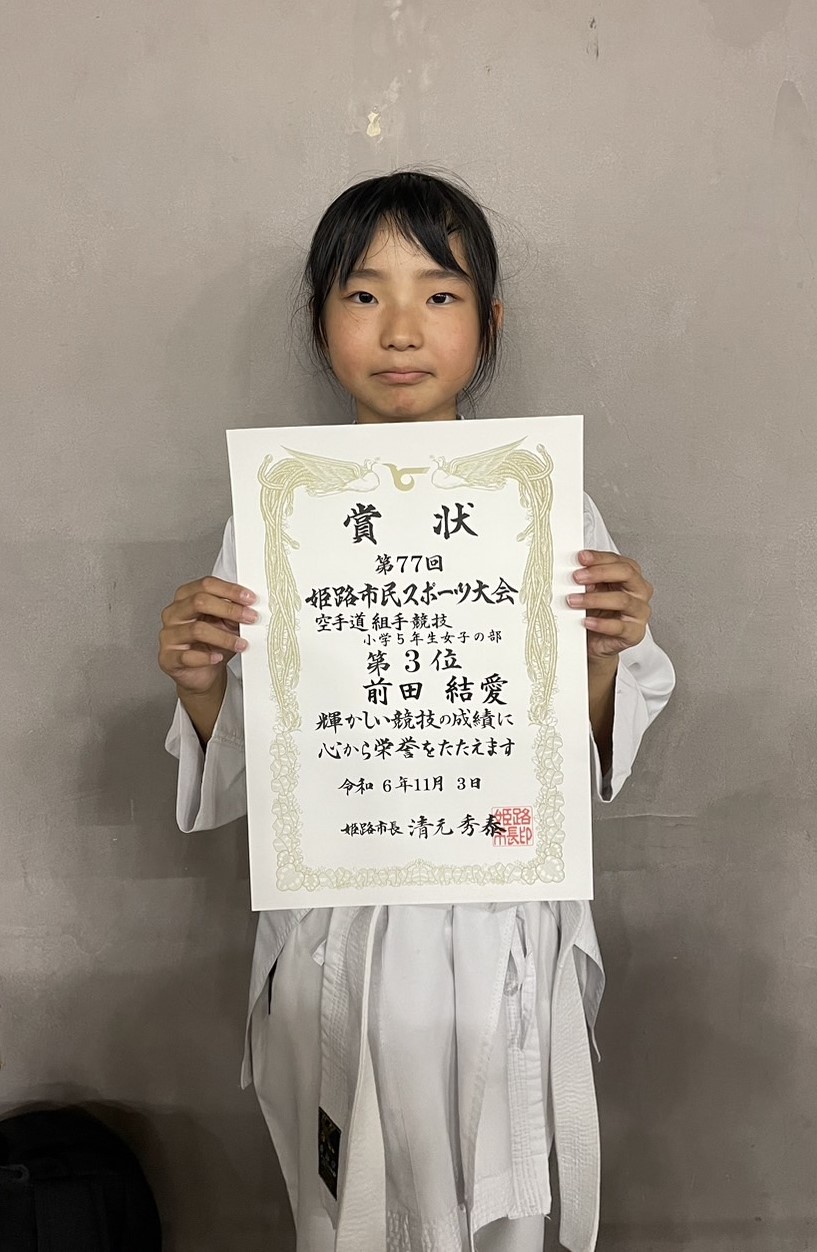 賞状
第77回
姫路市民スポーツ大会
空手道 組手競技
小学5年生女子の部
第3位
前田 結愛
輝かしい競技の成績に
心から栄誉をたたえます
令和 6年11月 3日
姫路市長 清元秀泰
姫路市長印